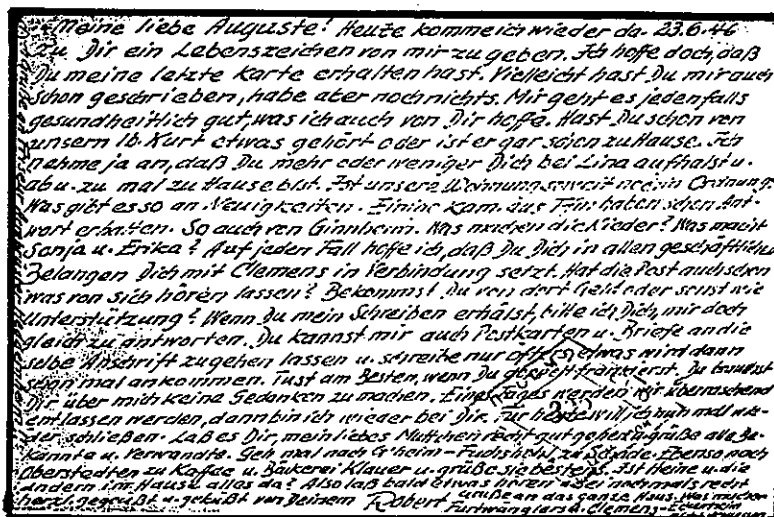 Meine liebe Auguste! Heute komme ich wieder da- 23.6.46
zu Dir ein Lebenszeichen von mir zu geben. Ich hoffe doch, daß
Du meine letzte Karte erhalten hast. Vielleicht hast Du mir auch
schon geschrieben, habe aber noch nichts. Mir geht es jedenfalls
gesundheitlich gut, was ich auch von Dir hoffe. Hast Du schon von
unserm lb. Kurt etwas gehört oder ist er gar schon zu Hause. Ich
nehme ja an, daß Du mehr oder weniger Dich bei Lina aufhälst u.
ab u. zu mal zu Hause bist. Ist unsere Wohnung soweit noch in Ordnung.
Was gibt es so an Neuigkeiten. Einige Kam. aus haben schon Ant-
wort erhalten. So auch von Ginnheim. Was machen die Kieder? Was macht
Sonja u. Erika? Auf jeden Fall hoffe ich, daß Du Dich in allen geschäftlichen
Belangen Dich mit Clemens in Verbindung setzt. Hat die Post auch schon
was von sich hören lassen? Bekommst Du von dort Geld oder sonst wie
Unterstützung? Wenn Du mein Schreiben erhälst, bitte ich Dich, mir doch
gleich zu antworten. Du kannst mir auch Postkarten u. Briefe an die
selbe Anschrift zugehen lassen u. schreibe nur öfters, etwas wird dann
schon mal ankommen. Tust am Besten, wenn Du frankierst. Du brauchst
Dir über mich keine Gedanken zu machen. Eines Tages werden wir überraschend
entlassen werden, dann bin ich wieder bei Dir. Für heute will ich nun mal wie-
der schließen. Laß es Dir, mein liebes Muttchen recht gut gehen u. grüße alle Be-
kannte u. Verwandte. Geh mal nach G'heim- zu Ebenso nach
Oberstedten zu Kaffee u. Bäkerei Klauer u. grüße sie bestens. Ist Heine u. die
andern im Hause alles da? Also laß bald etwas hören u. sei nochmals recht
herzl. gegrüßt u. geküßt von Deinem Robert Grüße an das ganze Haus. Was machen
Furtwänglers A. Clemens-